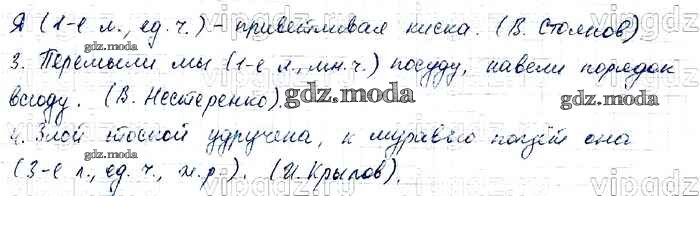 Я (1-е л., ед. ч.) - приветливая киска. (В. Столнов)
3. Перемыли мы (1-е л., мн. ч.) посуду, навели порядок
всюду. (В. Нестеренко).
4. Злой тоской удручена, к муравью ползёт она
(3-е л., ед. ч., ж. р.). (И. Крылов).
gdz.moda
gdz.moda
gdz.moda
gdz.moda
gdz.moda
gdz.moda
vipgdz
vipgdz